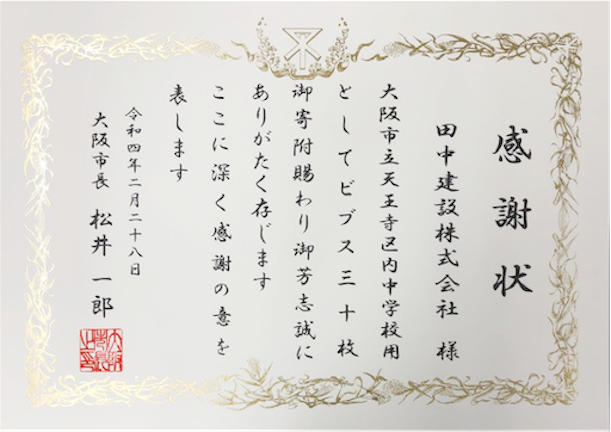 感謝状
田中建設株式会社 様
大阪市立天王寺区内中学校用
としてビブス三十枚
御寄附賜わり御芳志誠に
ありがたく存じます
ここに深く感謝の意を
表します
令和四年二月二十八日
大阪市長 松井 一郎